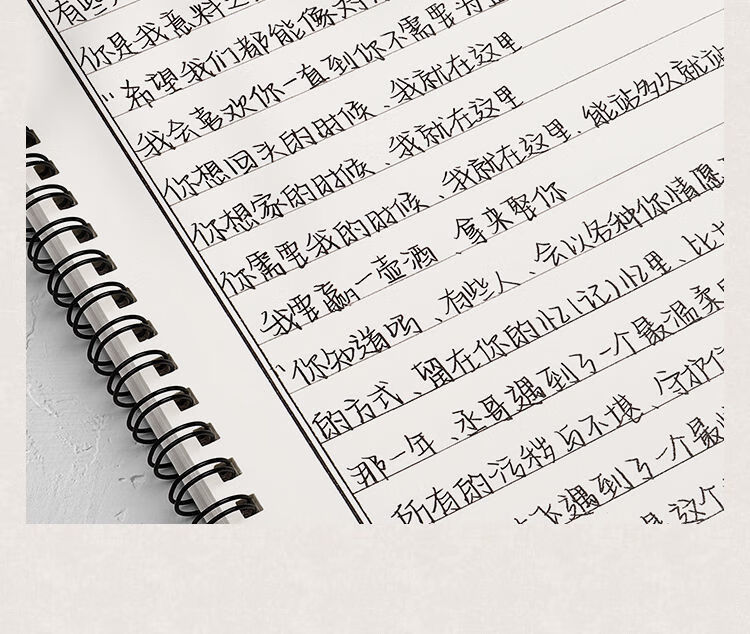 有些
你是我意料之
“希望我们都能像对
我会喜欢你一直到你不需要
你想回头的时候、我就在这里
你想家的时候、我就在这里
你需要我的时候、我就在这里、能站多久就站
我要赢一壶酒、拿来娶你
“你知道吗、有些人、会以各种你情愿
的方式、留在你的忆(记)忆里、比
那一年、永哥遇到了一个最温柔
所有的污秽与不堪、守护
飞遇到了一个最
是这个